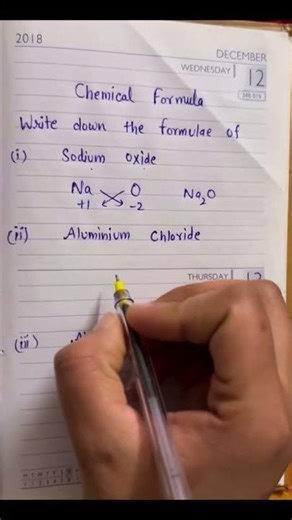 2018
DECEMBER
WEDNESDAY 12
346 019
Chemical Formula
Write down the formulae of
(i) Sodium oxide
Na O Na₂O
+1 -2
(ii) Aluminium Chloride
THURSDAY
(iii)